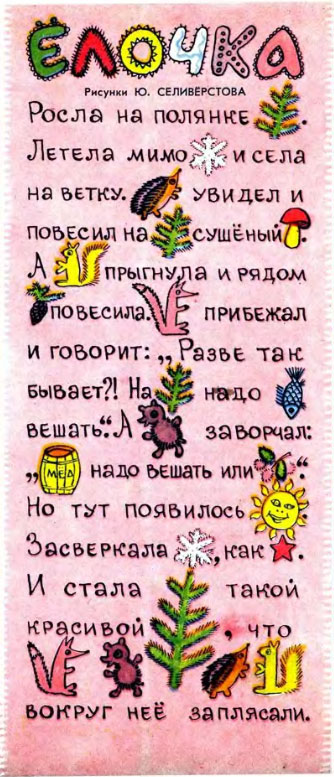 ЁЛОЧКА
Рисунки Ю. СЕЛИВЁРСТОВА
Росла на полянке .
Летела мимо и села
на ветку. увидел и
повесил на сушёный .
А прыгнула и рядом
повесила. прибежал
и говорит: „Разве так
бывает?! На надо
вешать“. А заворчал:
„ МЁД надо вешать или “.
Но тут появилось .
Засверкала , как .
И стала такой
красивой , что
вокруг неё заплясали.